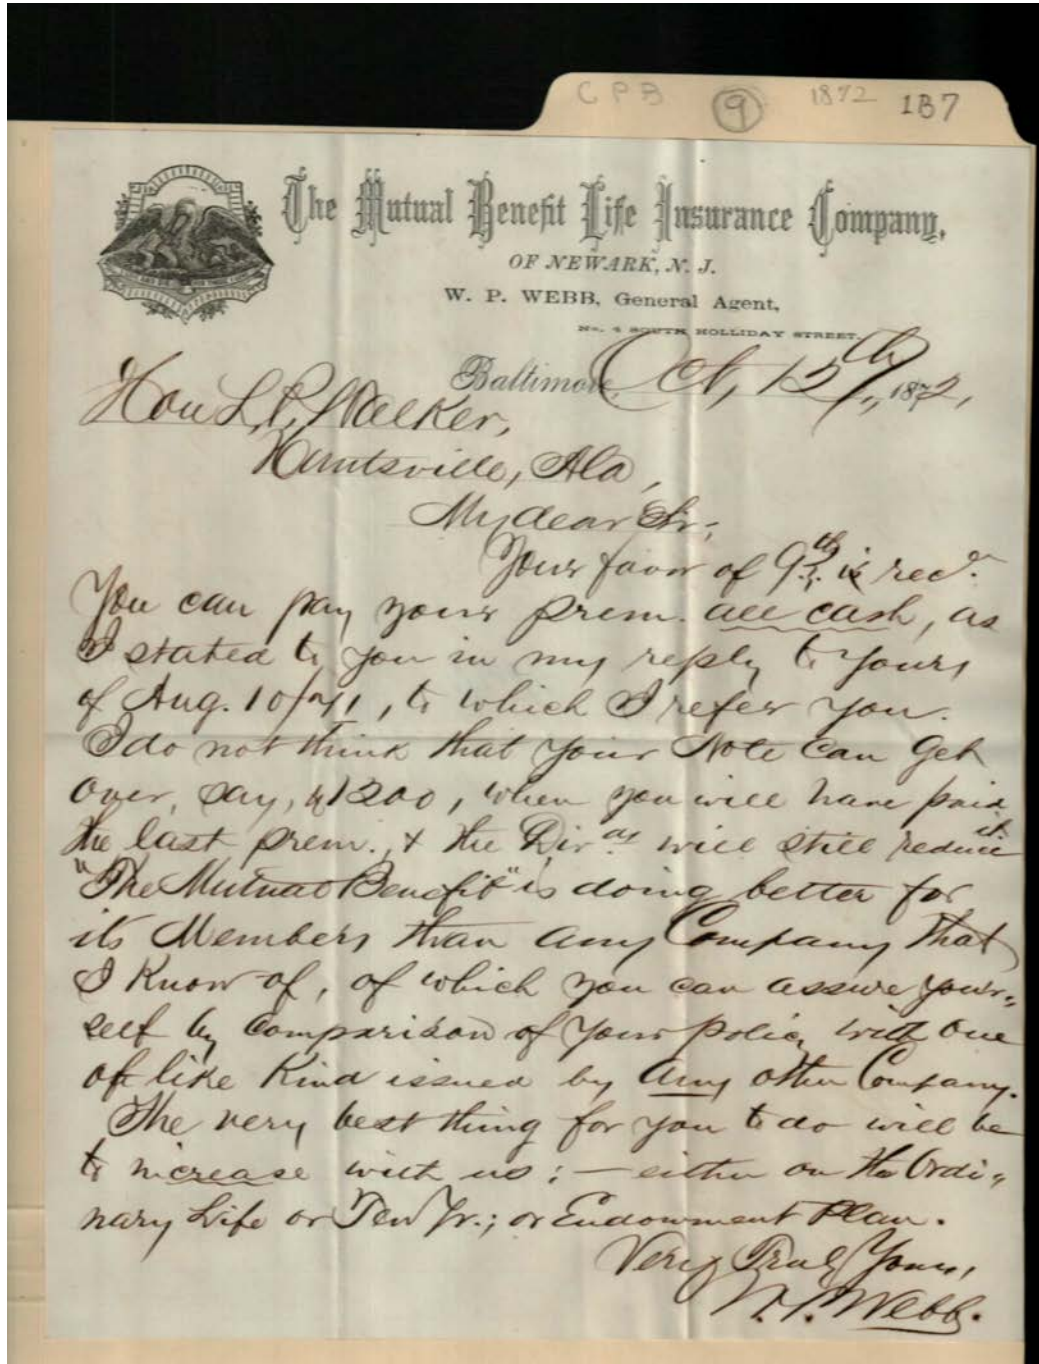 CPB 9 1872 187
The Mutual Benefit Life Insurance Company,
OF NEWARK, N. J.
W. P. WEBB, General Agent,
No. 4 SOUTH HOLLIDAY STREET.
Baltimore, Oct, 12th, 1872,
Hon L. P. Walker,
Huntsville, Ala,
My dear Sir;
Your favor of 9th is recd.
You can pay your prem. all cash, as
I stated to you in my reply to yours
of Aug. 10/71, to which I refer you.
I do not think that your Note can get
over, say, $1200, when you will have paid
the last prem., & the Divds will still reduce it.
"The Mutual Benefit" is doing better for
its Members than any Company that
I know of, of which you can assure your-
self by comparison of your policy with one
of like kind issued by any other Company.
The very best thing for you to do will be
to increase with us; — either on the Ordi-
nary Life or Ten Yr.; or Endowment Plan.
Very Truly Yours,
W. P. Webb.